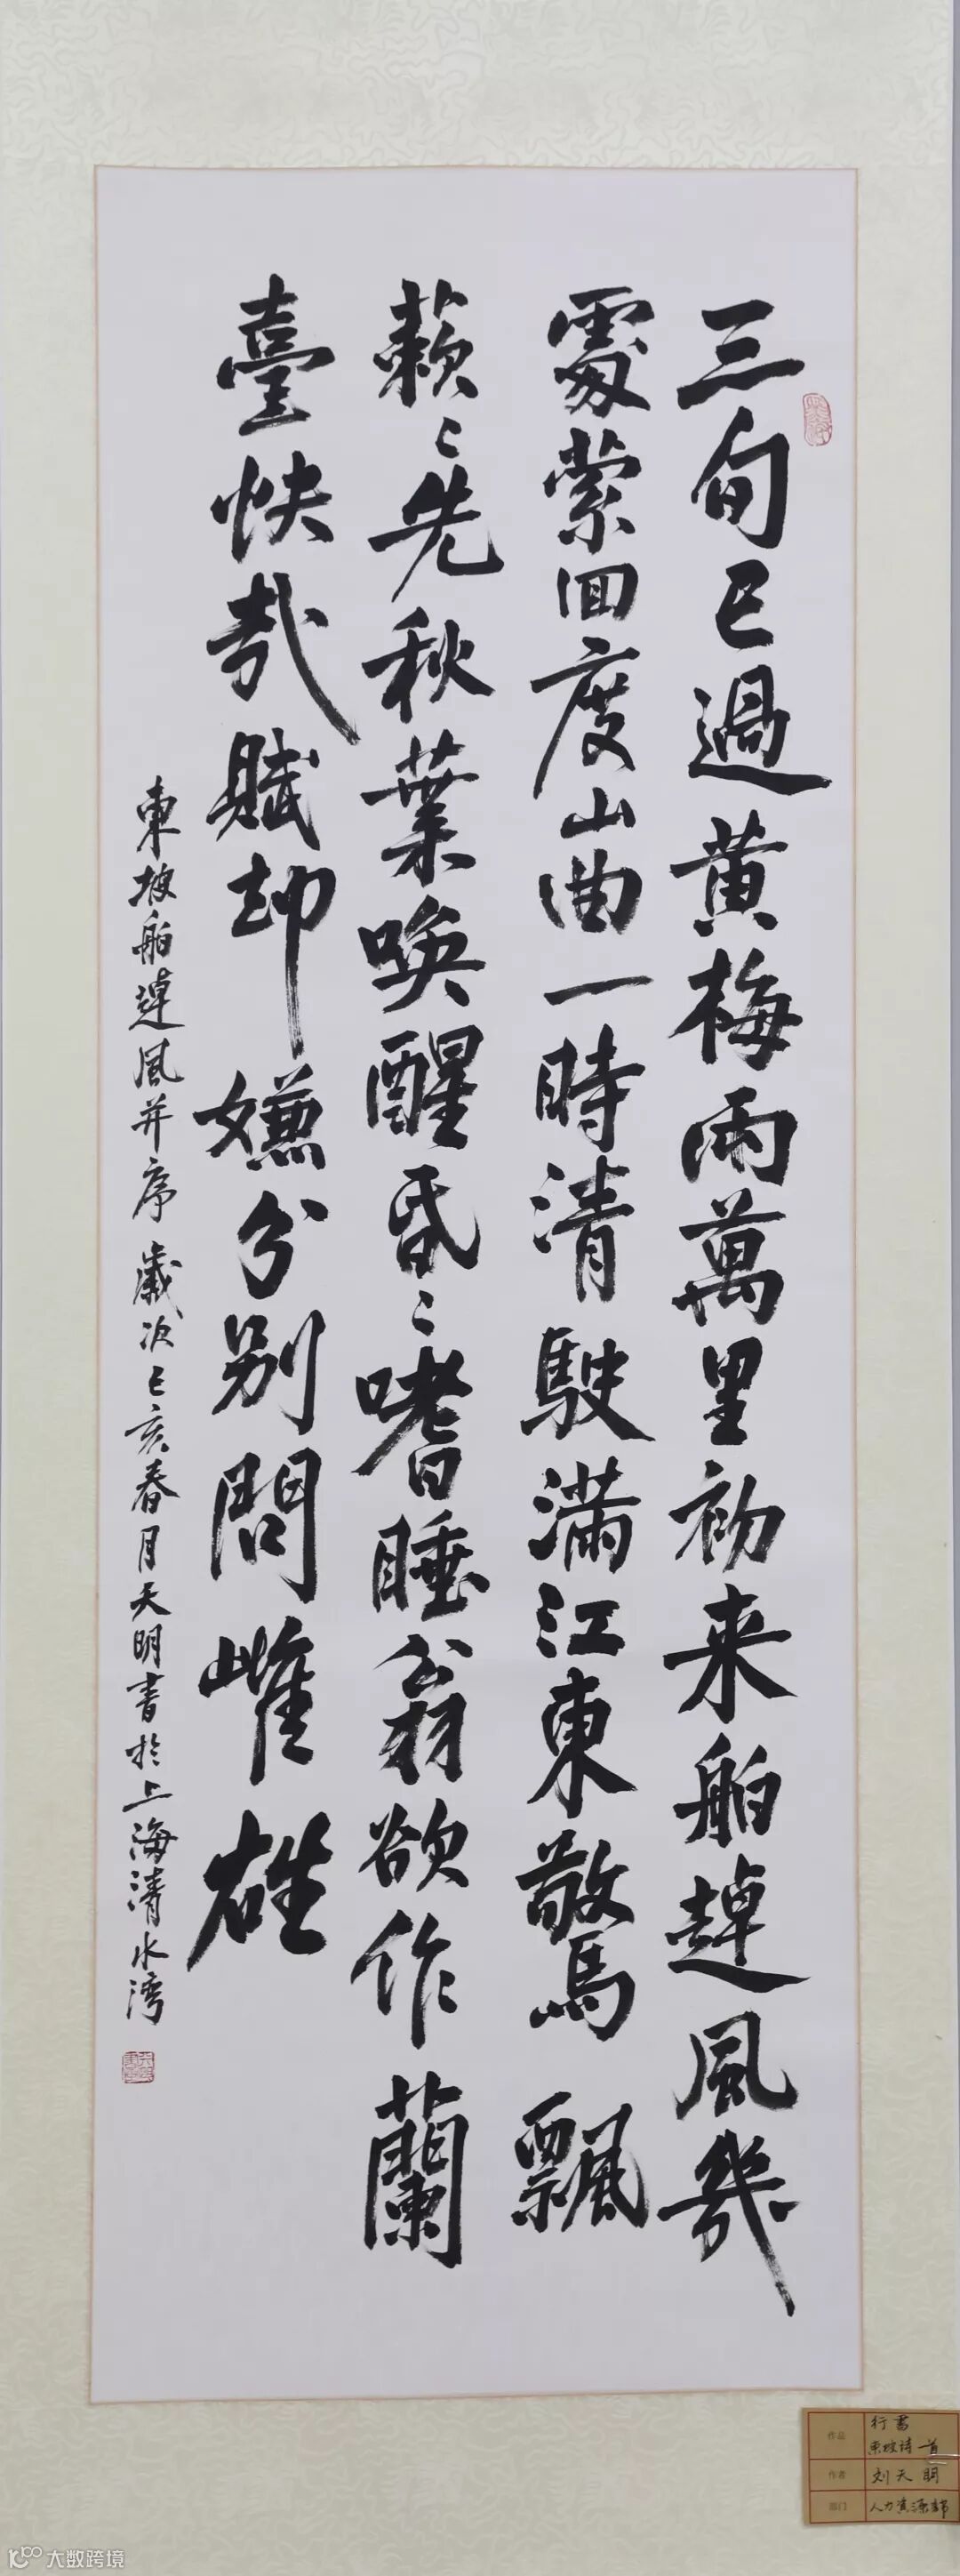 三旬已過黄梅雨萬里初来舶趠風幾
處縈回度山曲一時清駛滿江東驚飄
蔌〻先秋葉喚醒昏〻嗜睡翁欲作蘭
臺快哉賦却嫌分别問雌雄
東坡舶趠風并序 歲次己亥春月天明書於上海清水湾
作品 行書
東坡诗一首
作者 刘天明
部门 人力资源部
大数跨境